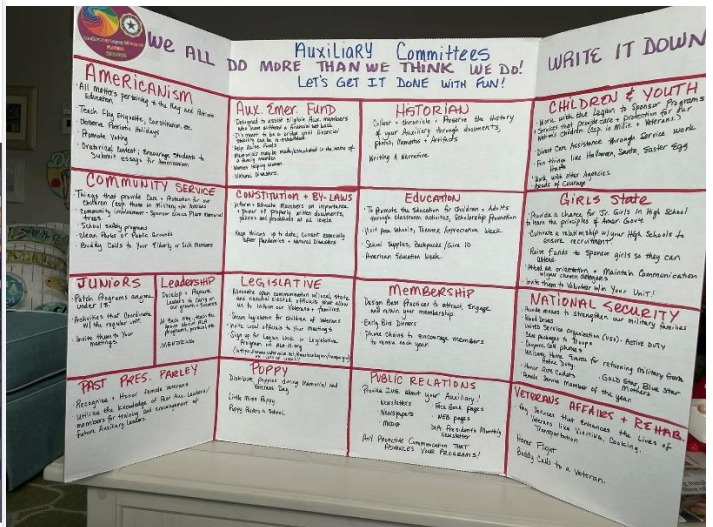 We ALL
DO MORE THAN WE THINK WE DO!
WRITE IT DOWN
Auxiliary Committees
LET'S GET IT DONE WITH FUN!
AMERICANISM
All matters pertaining to the Flag and Patriotic
Education
Teach Flag Etiquette, Constitution, etc.
Observe Patriotic Holidays
Promote Voting
Oratorical Contest; Encourage Students to
Submit essays for Americanism
COMMUNITY SERVICE
Things that provide Care + Protection for our
School safety programs
Clean Parks or Public Grounds
Buddy Calls to Your Elderly or Sick Members
JUNIORS
Patch Programs anyone
under 18
Activities that Coordinate
w/ the regular unit.
Invite them to your
meetings
Leadership
Develop + Prepare
Leaders to carry on
MENTORING
PAST PRES. PARLEY
Recognize + Honor female Veterans
Utilize the Knowledge of Past Aux. Leaders/
members for training and encouragement of
Future Auxiliary Leaders.
AUX. EMER. FUND
Designed to assist eligible Aux. members
Help Raise Funds
Women helping women
Natural Disasters
CONSTITUTION + BY-LAWS
Inform + Educate Members on importance
+ power of properly written documents,
Keep things up to date, current especially
after pandemics + Natural Disasters
LEGISLATIVE
Invite Local officials to your Meetings
POPPY
Distribute Poppies during Memorial and
Veterans Day
Little Miss Poppy
Poppy Posters in School
HISTORIAN
Collect + Chronicle + Preserve the History
of your Auxiliary through documents,
Photos, Mementos + Artifacts
Writing A Narrative
EDUCATION
To Promote the Education for Children + Adults
through classroom activities, Scholarship Promotion
Visit your Schools, Teachers Appreciation Week.
School Supplies, Backpacks/Give 10
American Education Week
MEMBERSHIP
Design Best Practices to attract, Engage
and retain your membership.
Early Bird Dinners
Phone chains to encourage members
to renew each year
PUBLIC RELATIONS
Provide INFO. about your Auxiliary!
Newsletters
Face Book pages
Newspapers
WEB pages
MEDIA
Dept. President's Monthly
Newsletter
Any Proactive Communication THAT
ADVANCES YOUR PROGRAMS!
CHILDREN & YOUTH
Work with the Legion to Sponsor Programs
+ Services that provide care + protection for our
Direct Care Assistance through Service work
Fun things like Halloween, Santa, Easter Egg
Hunts
Work with other Agencies
Beads of Courage
GIRLS STATE
Provide a chance for Jr. Girls in High School
to learn the principles of Amer. Gov't
Cultivate a relationship w/your High Schools to
ensure recruitment.
Raise Funds to Sponsor girls so they can
attend.
Attend an orientation + Maintain Communication
Invite them to Volunteer w/in Your Unit!
NATIONAL SECURITY
Provide means to strengthen our military families
Blood Drives
United Service Organization (USO) - ACTIVE DUTY
Care packages to troops
Welcome Home Events for returning military from
Active Duty
Honor ROTC Cadets
Gold Star, Blue Star
Mothers
Female Service member of the year
VETERANS AFFAIRS + REHAB.
Any Services that Enhances the Lives of
Transportation
Honor Flight
Buddy Calls to a Veteran.